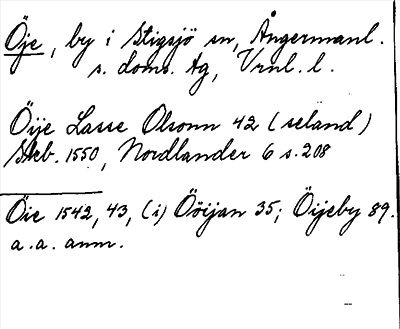 Öje, by i Stigsjö sn, Ångermanl.
s. doms. tg, Vrnl. l.
Öije Lasse Olsonn 42 (seland)
Skb. 1550, Nordlander 6 s. 208
Öie 1542, 43, (i) Ööijan 35; Öijeby 89.
a. a. anm.